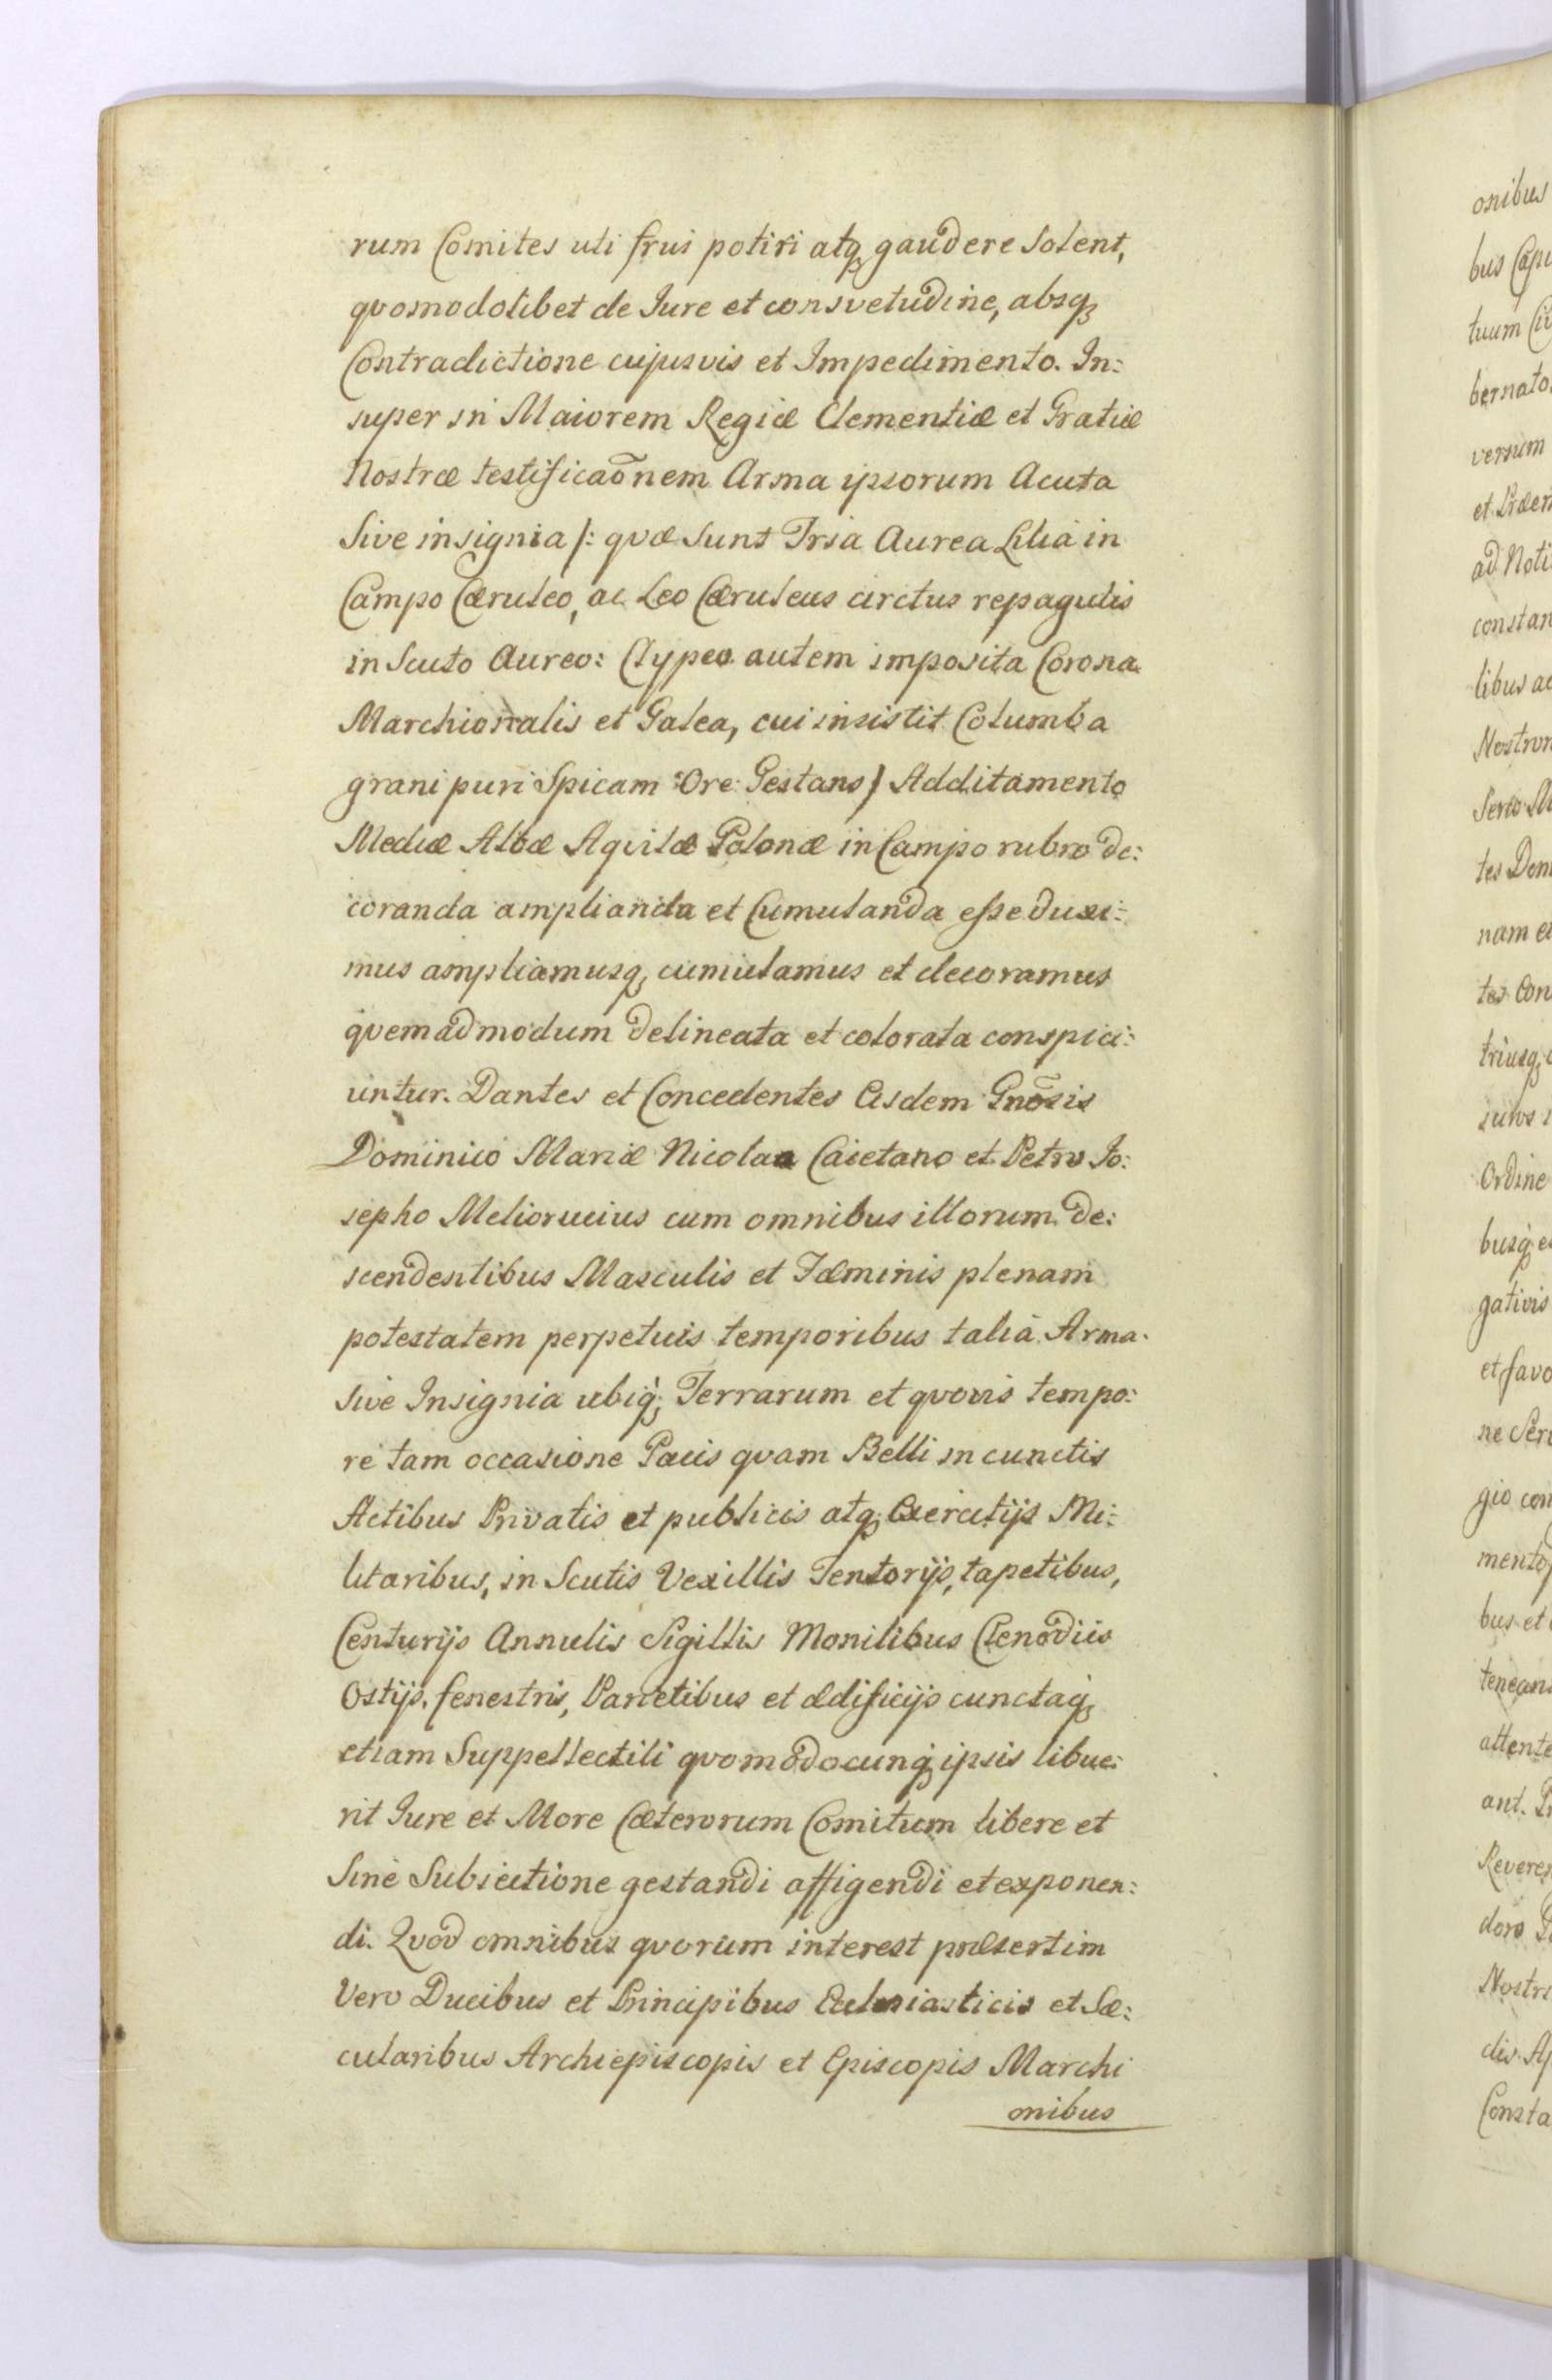 rum Comites uti frui potiri atq gaudere Solent,
qvomodolibet de Iure et consvetudine, absq
Contradictione cujusvis et Impedimento. In:
super in Maiorem Regiæ Clementiæ et Gratiæ
Nostræ testificaõnem Arma ipsorum Acuta
Sive insignia /: qvæ Sunt Tria Aurea Lilia in
Campo Cæruleo, ac Leo Cæruleus circtus repagulis
in Scuto Aureo: Clypeo autem imposita Corona
Marchionalis et Galea, cui insistit Columba
grani puri Spicam Ore Gestans / Additamento
Mediæ Albæ Aqvilæ Polonæ in Campo rubro de:
coranda amplianda et Cumulanda esse duxi:
mus ampliamusq cumulamus et decoramus
qvemadmodum delineata et colorata conspici:
untur. Dantes et Concedentes Eisdem Gnõsis
Dominico Mariæ Nicolao Caietano et Petro Jo:
sepho Meliorucius cum omnibus illorum de:
scendentibus Masculis et Fæminis plenam
potestatem perpetuis temporibus talia Arma
sive Insignia ubiq; Terrarum et qvovis tempo:
re tam occasione Pacis qvam Belli in cunctis
Actibus Privatis et publicis atq Exercitijs Mi:
litaribus, in Scutis Vexillis Tentorijs, tapetibus,
Centurijs Annulis Sigillis Monilibus Clenodiis
Ostijs, fenestris, Parietibus et ædificijs cunctaq
etiam Suppellectili qvomodocunq ipsis libue:
rit Iure et More Cæterorum Comitum libere et
Sine Subiectione gestandi affigendi et exponen:
di. Qvod omnibus qvorum interest præsertim
Vero Ducibus et Principibus Eclesiasticis et Sæ:
cularibus Archiepiscopis et Episcopis Marchi
onibus
onibus
bus
tuum
bernato
versum
ad Noti
constan
libus
tes
nam
Ordine
gativis
et favo
gio con
mento
bus et
tenean
attente
Nostr
Consta